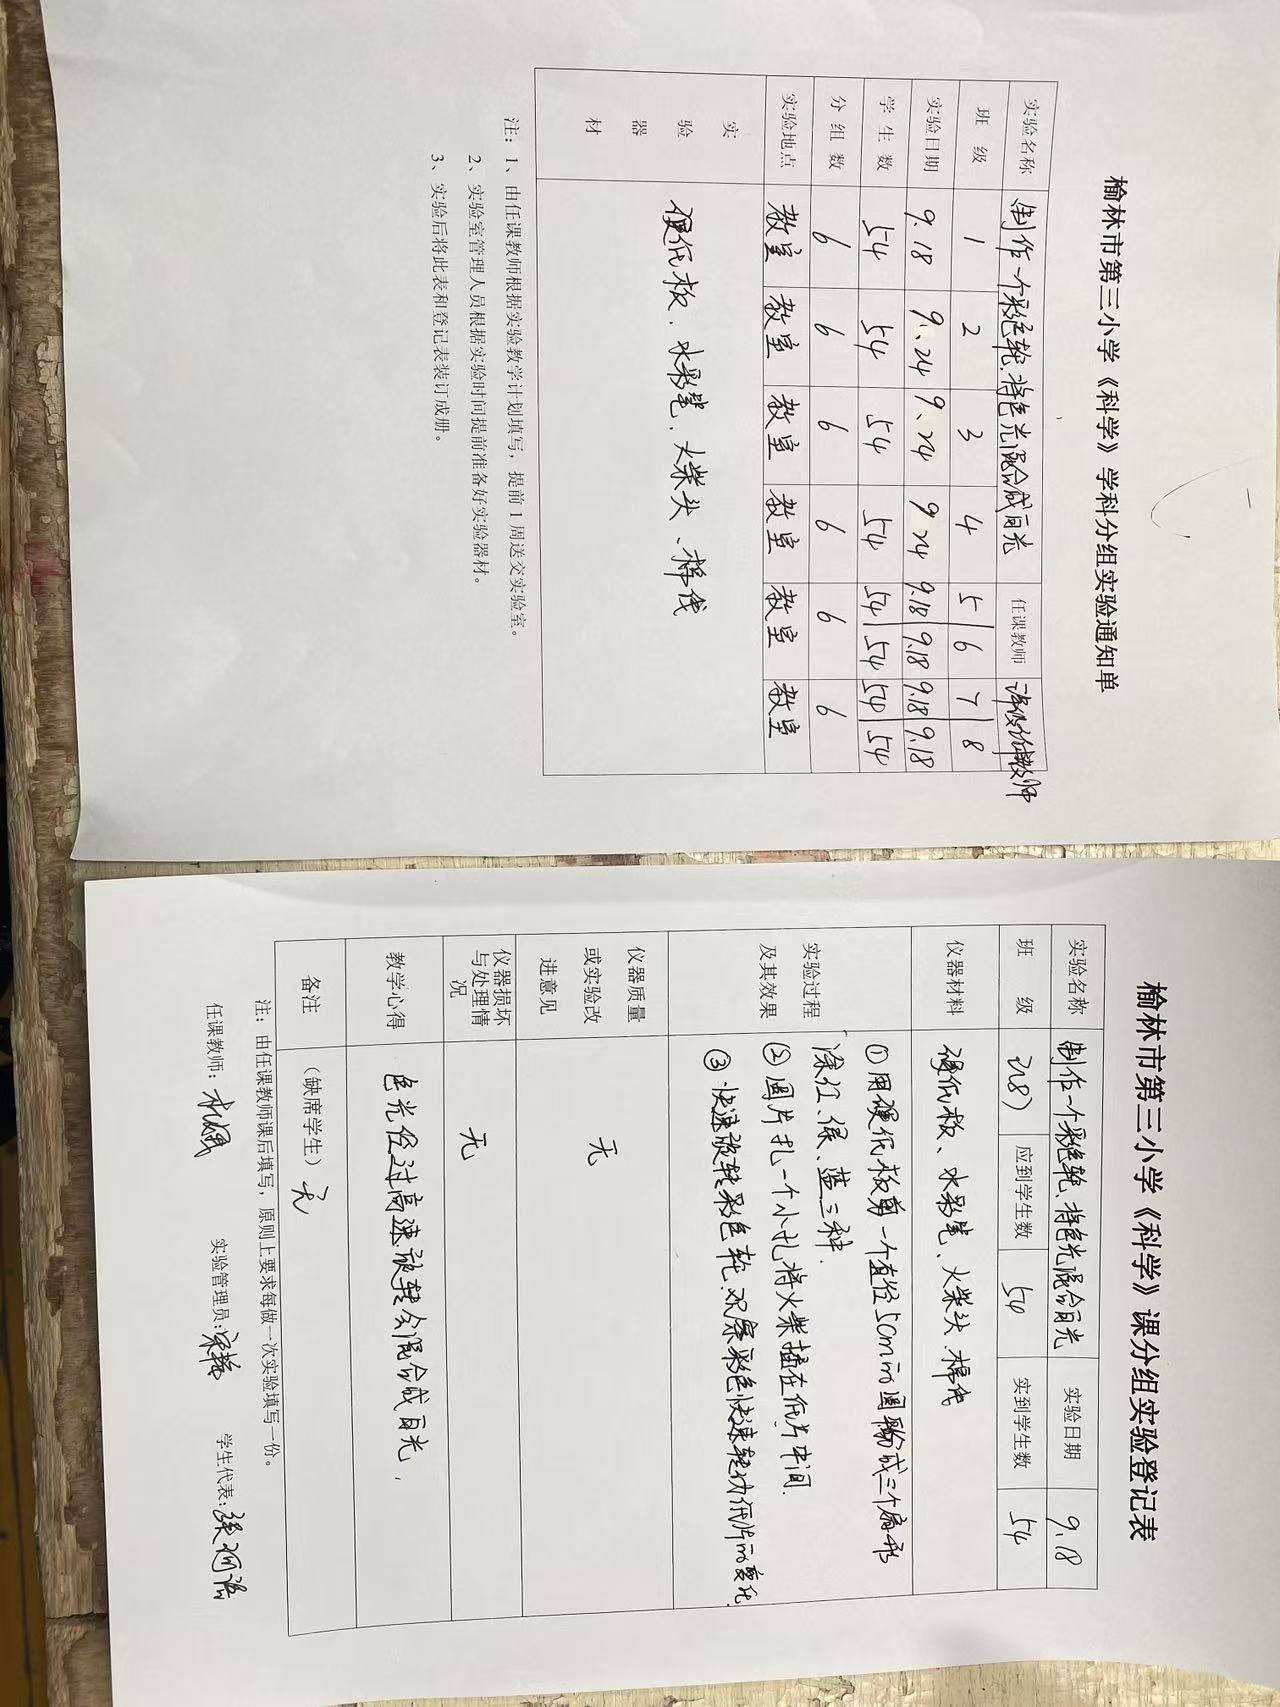 榆林市第三小学《科学》学科分组实验通知单
实验名称 制作一个彩色轮、将色光混合成白光 任课教师
班 级 1 2 3 4 5 6 7 8
实验日期 9.18 9、24 9、24 9 24 9.18 9.18 9.18 9.18
学 生 数 54 54 54 54 54 54 54 54
分 组 数 6 6 6 6 6 6
实验地点 教室 教室 教室 教室 教室 教室
实
验
器
材
硬低板、水彩笔、火柴头、棉线
注：1、由任课教师根据实验教学计划填写，提前 1 周送交实验室。
2、实验室管理人员根据实验时间提前准备好实验器材。
3、实验后将此表和登记表装订成册。
榆林市第三小学《科学》课分组实验登记表
实验名称 制作一个彩色轮、将色光混合白光 实验日期 9.18
班 级 应到学生数 54 实到学生数 54
仪器材料 硬低板、水彩笔、火柴头、棉线
实验过程
及其效果
①用硬低板剪一个直径50mm圆 成三个扇形
涂红、绿、蓝三种.
②圆片扎一个小扎将火柴插在低片中间.
③.快速旋转彩色轮.观察彩色快速转动低片而变化
仪器质量
或实验改
进意见
无
仪器损坏
与处理情
况
无
教学心得 色光经过高速旋转会混合成白光.
备注 （缺席学生）无
注：由任课教师课后填写，原则上要求每做一次实验填写一份。
任课教师： 实验管理员： 学生代表：